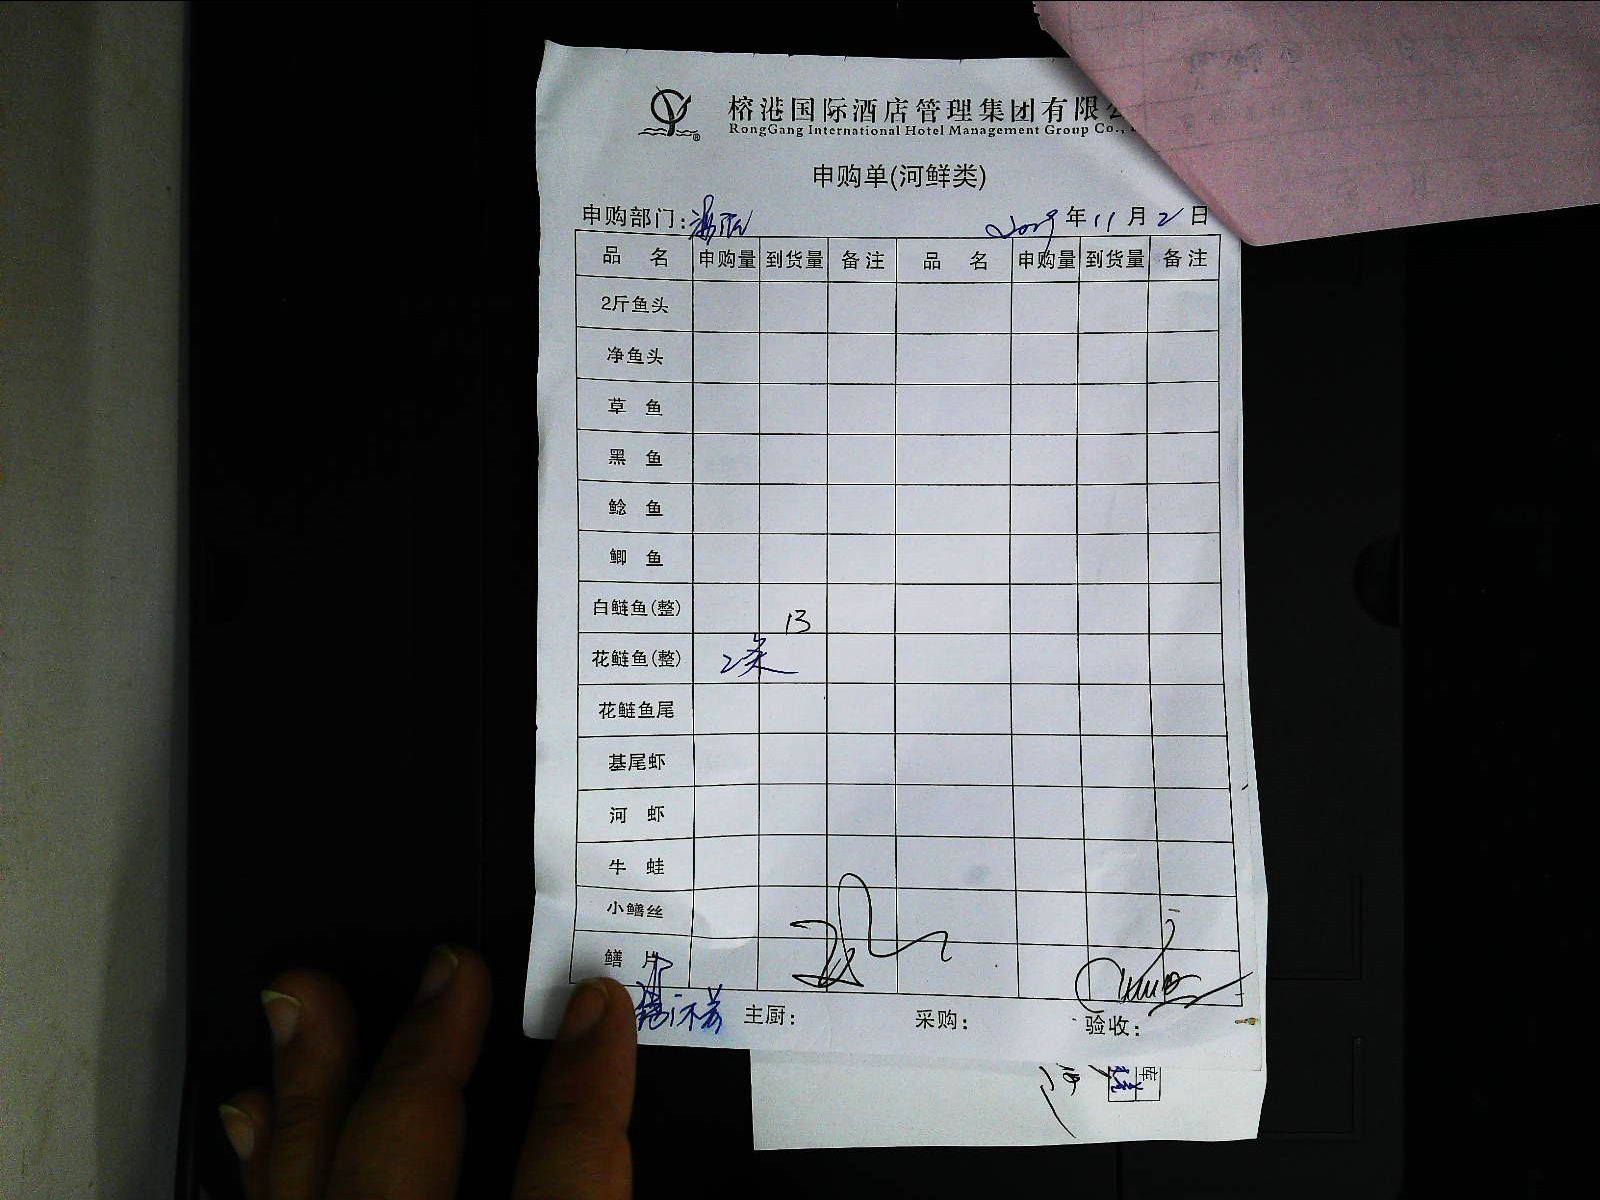 榕港国际酒店管理集团有限公
RongGang International Hotel Management Group Co.,
申购单(河鲜类)
申购部门: 2029年11月2日
品名 申购量 到货量 备注 品名 申购量 到货量 备注
2斤鱼头
净鱼头
草鱼
黑鱼
鲶鱼
鲫鱼
白鲢鱼(整) 13
花鲢鱼(整) 2条
花鲢鱼尾
基尾虾
河虾
牛蛙
小鳝丝
鳝片
主厨: 采购: 验收: